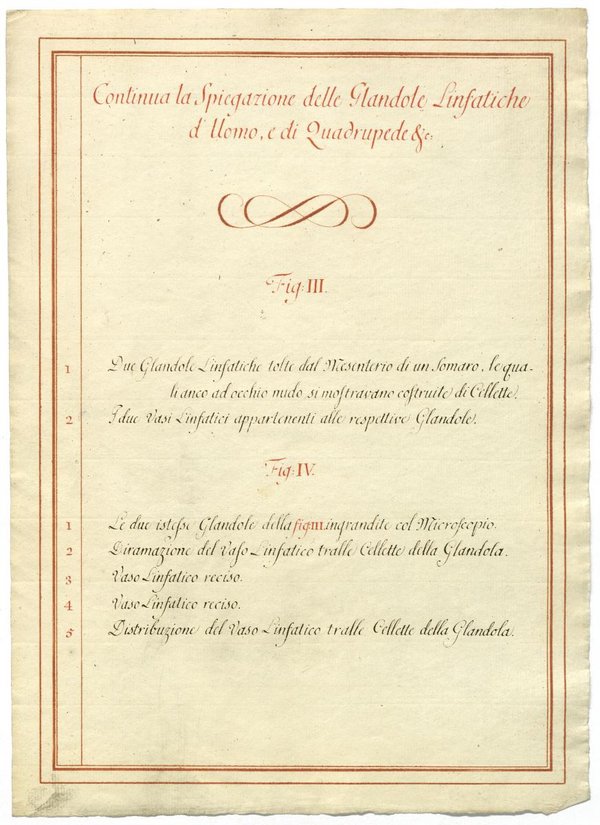 Continua la Spiegazione delle Glandole Linfatiche
d'Uomo, e di Quadrupede &c:
Fig: III.
1 Due Glandole Linfatiche tolte dal Mesenterio di un Somaro, le qua-
li anco ad occhio nudo si moſtravano coſtruite di Cellette.
2 I due Vasi Linfatici appartenenti alle respettive Glandole.
Fig: IV.
1 Le due isteſse Glandole della fig: III. ingrandite col Microscopio.
2 Diramazione del Vaſo Linfatico tralle Cellette della Glandola.
3 Vaso Linfatico reciso.
4 Vaso Linfatico reciso.
5 Distribuzione del Vaso Linfatico tralle Cellette della Glandola.